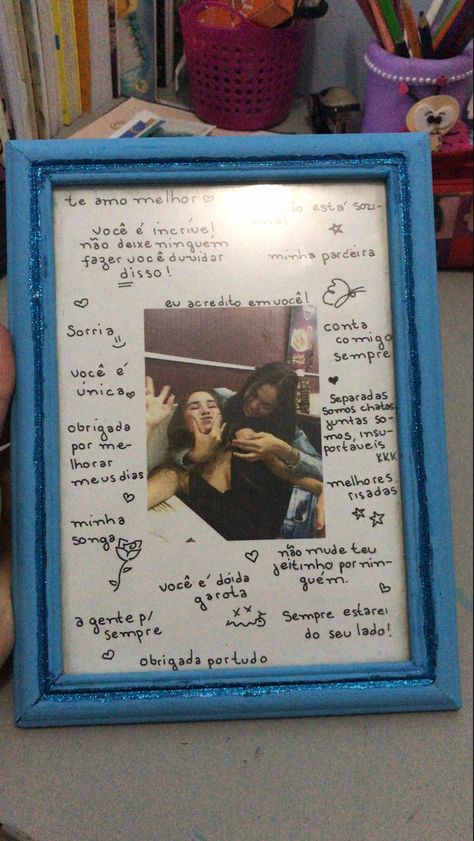 te amo melhor
não está sozi-
nha!
você é incrível
não deixe ninguém
fazer você duvidar
disso!
minha parceira
eu acredito em você!
Sorria
conta
comigo
sempre
você é
única
Separadas
somos chatas,
juntas so-
mos, insu-
portaveis
KKK
obrigada
por me-
lhorar
meus dias
melhores
risadas
minha
songa
não mude teu
jeitinho por nin-
guém.
você é dóida
garota
a gente p/
sempre
Sempre estarei
do seu lado!
obrigada por tudo